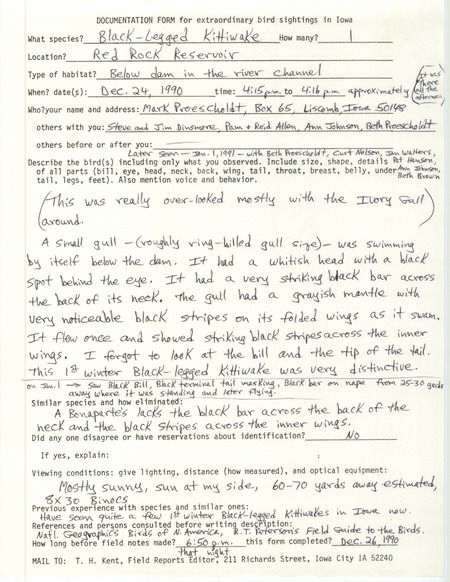 DOCUMENTATION FORM for extraordinary bird sightings in Iowa
What species? Black-Legged Kittiwake How many? 1
Location? Red Rock Reservoir
Type of habitat? Below dam in the river channel
When? date(s): Dec. 24, 1990 time: 4:15 p.m to 4:16 p.m approximately (It was there all the afternoon)
Who?your name and address: Mark Proescholdt, Box 65, Liscomb, Iowa 50148
others with you: Steve and Jim Dinsmore, Pam & Reid Allen, Ann Johnson, Beth Proescholdt
others before or after you:
Later Seen - Jan. 1, 1991 - with Beth Proescholdt, Curt Nelson, Jim Walters, Pat Hansen, Ann Johnson, Beth Brown
Describe the bird(s) including only what you observed. Include size, shape, details
of all parts (bill, eye, head, neck, back, wing, tail, throat, breast, belly, under
tail, legs, feet). Also mention voice and behavior.
(This was really over-looked mostly with the Ivory Gull
around.)
A small gull - (roughly ring-billed gull size) - was swimming
by itself below the dam. It had a whitish head with a black
spot behind the eye. It had a very striking black bar across
the back of its neck. The gull had a grayish mantle with
very noticeable black stripes on its folded wings as it swam.
It flew once and showed striking black stripes across the inner
wings. I forgot to look at the bill and the tip of the tail.
This 1st winter Black-legged Kittiwake was very distinctive.
on Jan. 1 → Saw Black Bill, Black terminal tail marking, Black bar on nape from 25-30 yards
away where it was standing and later flying.
Similar species and how eliminated:
A Bonaparte's lacks the black bar across the back of the
neck and the black stripes across the inner wings.
Did any one disagree or have reservations about identification? No
If yes, explain:
Viewing conditions: give lighting, distance (how measured), and optical equipment:
Mostly sunny, sun at my side, 60-70 yards away estimated,
8X30 Binocs
Previous experience with species and similar ones:
Have seen quite a few 1st winter Black-legged Kittiwakes in Iowa now.
References and persons consulted before writing description:
Natl. Geographics Birds of N. America, R.T. Peterson's Field Guide to the Birds.
How long before field notes made? 6:50 p.m. this form completed? Dec. 26, 1990
that night
MAIL TO: T. H. Kent, Field Reports Editor, 211 Richards Street, Iowa City IA 52240